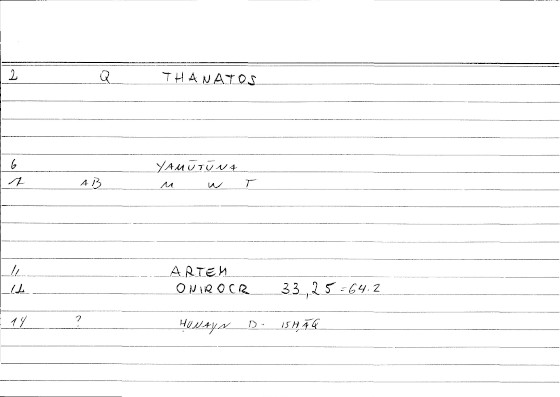 2 Q THANATOS
6 YAMŪTŪNA
7 AB M W T
11 ARTEM
12 ONIROCR 33,25=64.2
14 ? ḤUNAYN B. ISḤĀQ